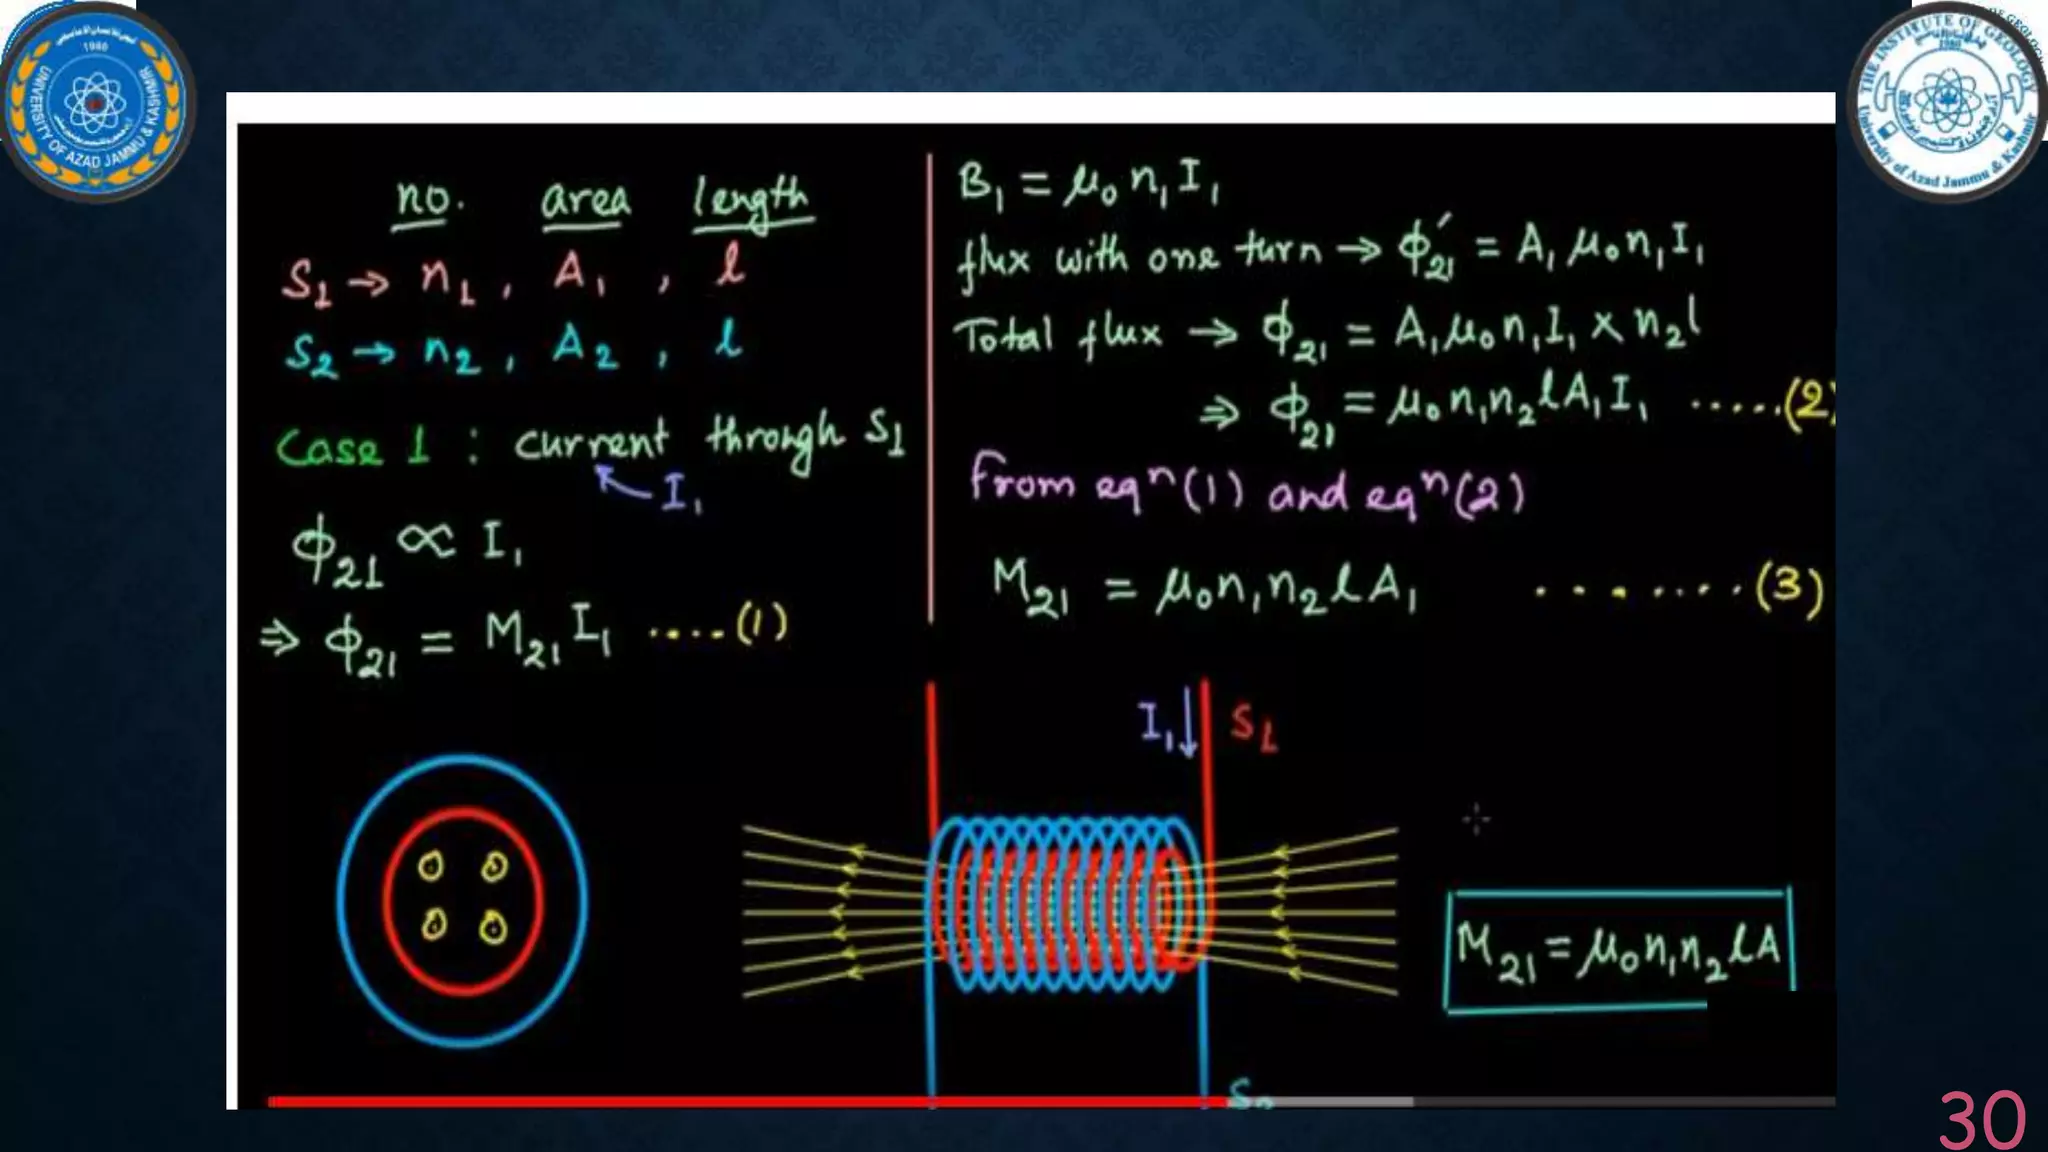 1980
UNIVERSITY OF AZAD JAMMU & KASHMIR
THE INSTITUTE OF GEOLOGY
1980
University of Azad Jammu & Kashmir
no. area length
S1 → n1, A1, l
S2 → n2, A2, l
Case 1 : current through S1
I1
ϕ21 ∝ I1
⇒ ϕ21 = M21 I1 ....(1)
B1 = μ0 n1 I1
flux with one turn → ϕ21′ = A1 μ0 n1 I1
Total flux → ϕ21 = A1 μ0 n1 I1 × n2 l
⇒ ϕ21 = μ0 n1 n2 l A1 I1 .....(2)
From eqn (1) and eqn (2)
M21 = μ0 n1 n2 l A1 .......(3)
I1↓ S1
M21 = μ0 n1 n2 l A
30